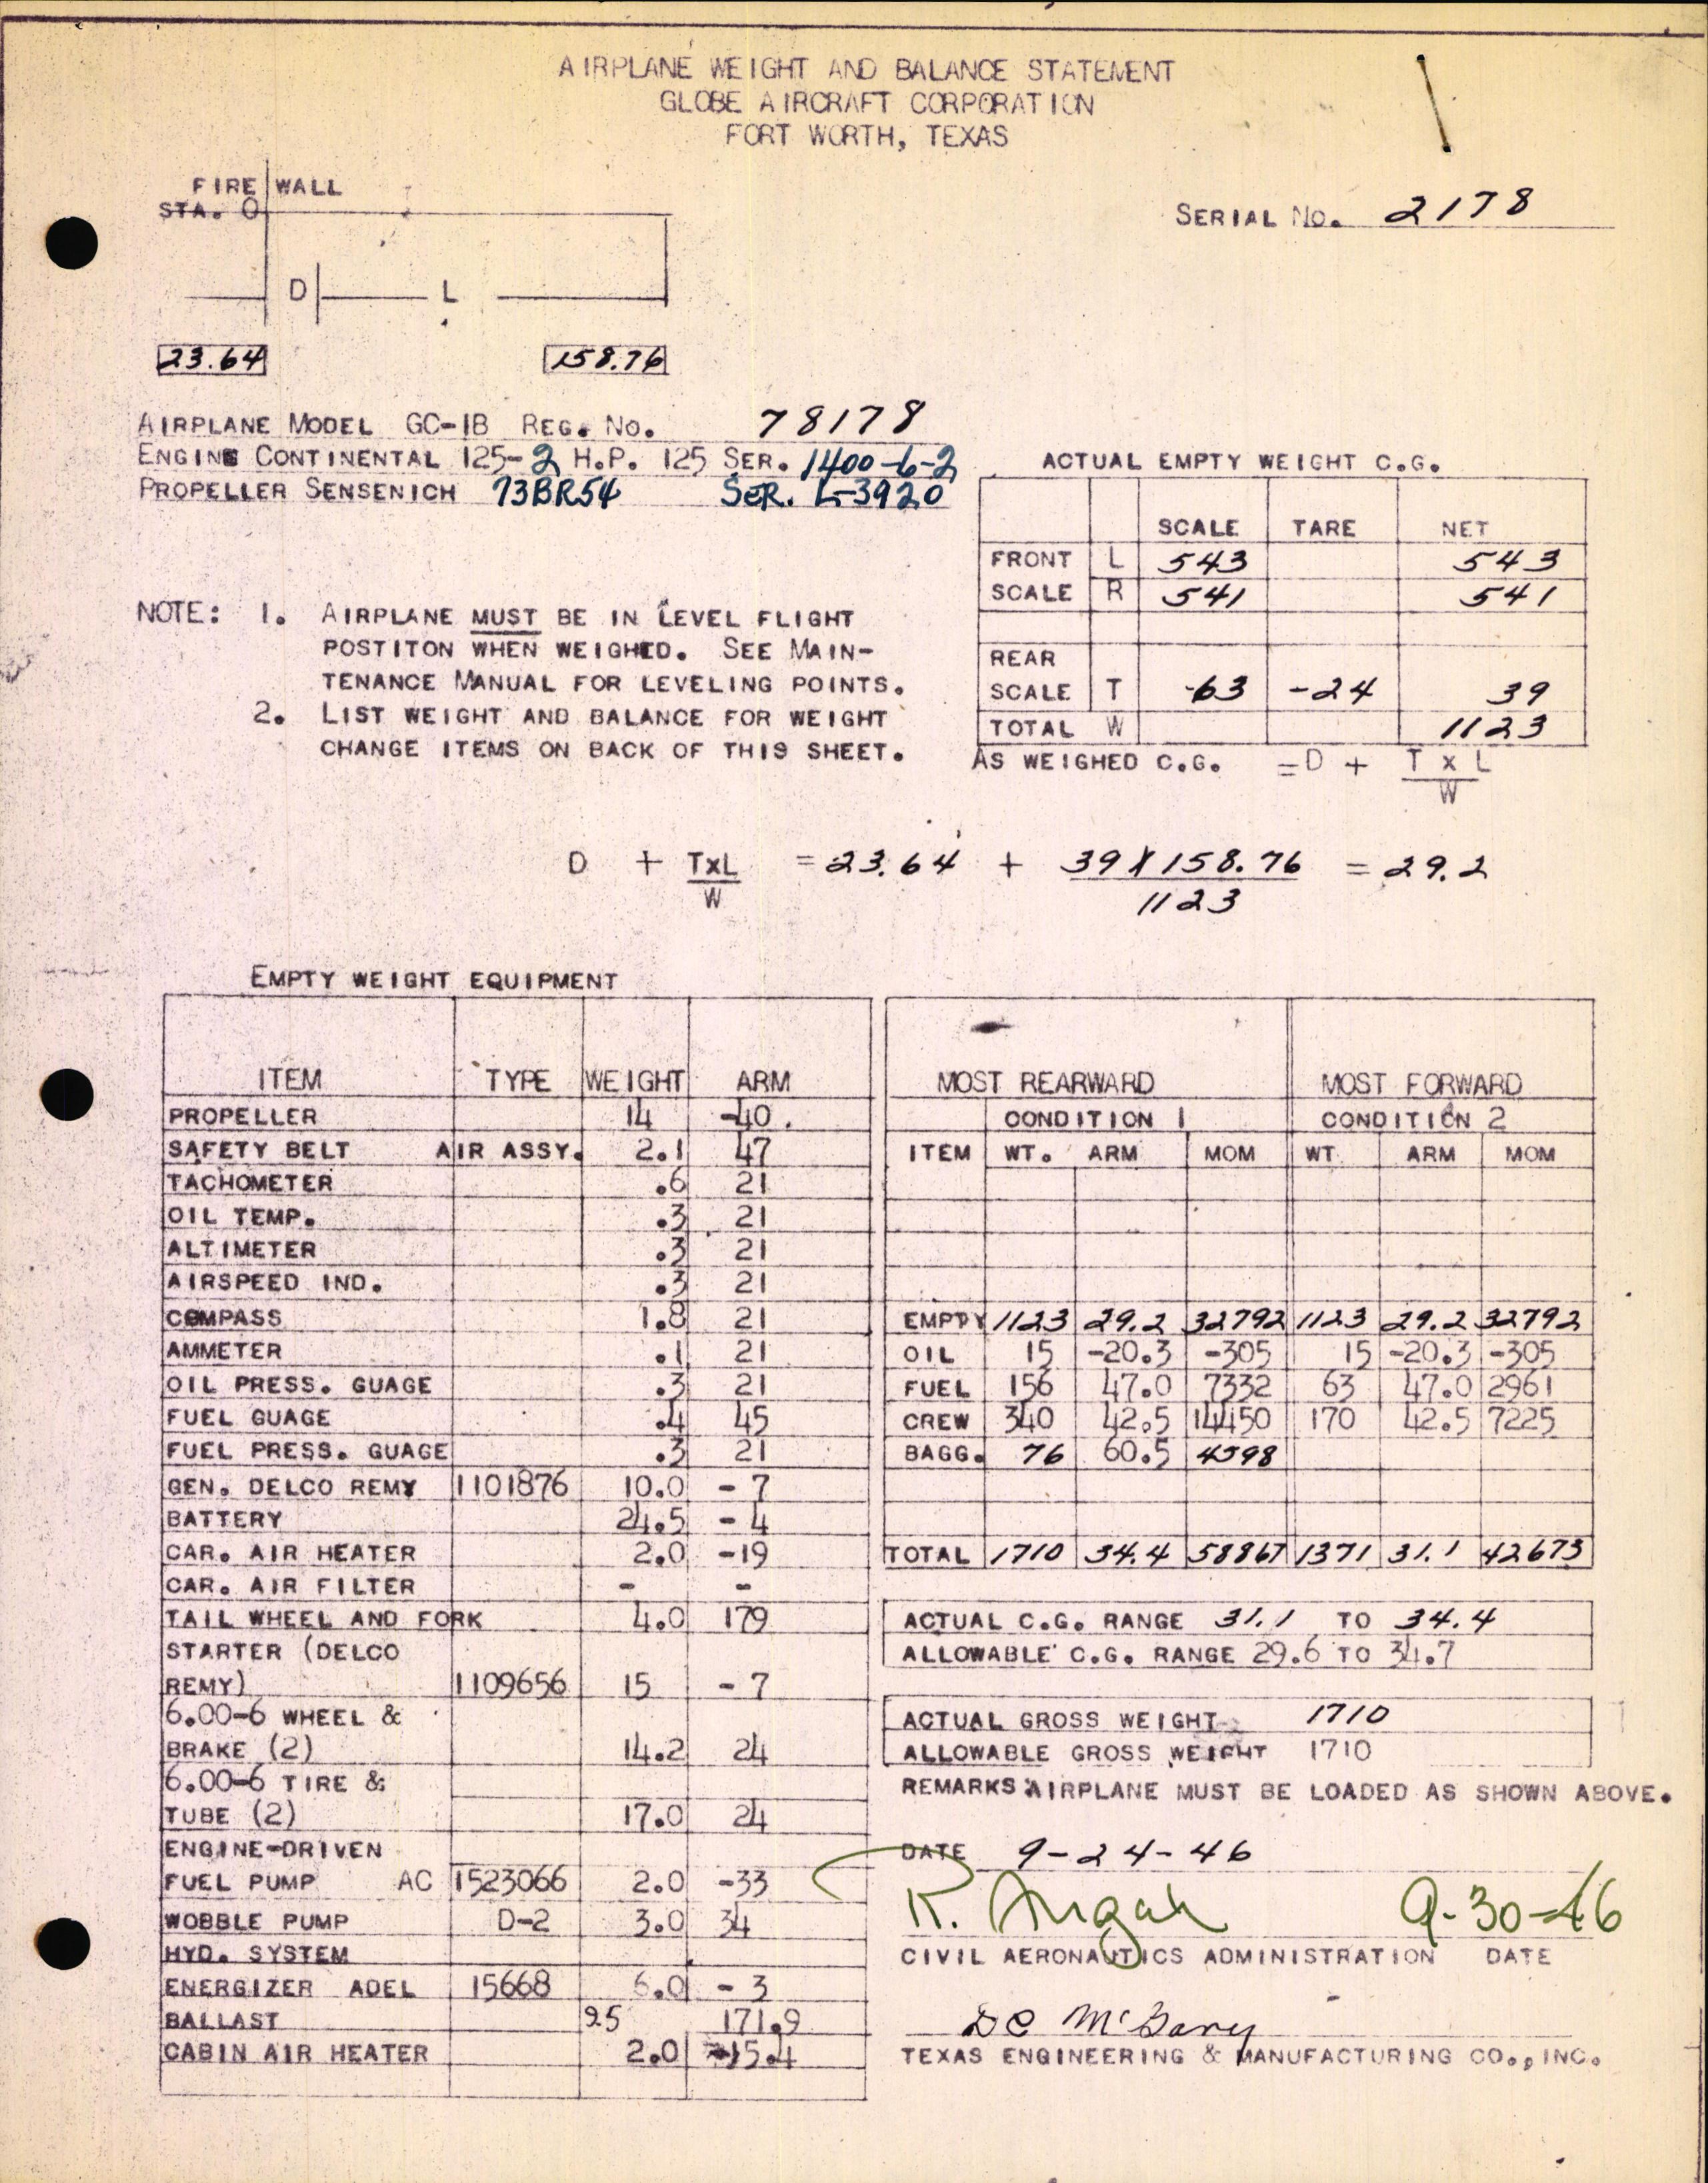 AIRPLANE WEIGHT AND BALANCE STATEMENT
GLOBE AIRCRAFT CORPORATION
FORT WORTH, TEXAS
FIRE WALL
STA. 0
SERIAL NO. 2178
D L
23.64 158.76
AIRPLANE MODEL GC-1B REG. NO. 78178
ENGINE CONTINENTAL 125-2 H.P. 125 SER. 1400-6-2
PROPELLER SENSENICH 73BR54 SER. L-3920
ACTUAL EMPTY WEIGHT C.G.
SCALE TARE NET
FRONT L 543 543
SCALE R 541 541
REAR
SCALE T 63 -24 39
TOTAL W 1123
AS WEIGHED C.G. = D + T x L
W
NOTE: 1. AIRPLANE MUST BE IN LEVEL FLIGHT
POSTITON WHEN WEIGHED. SEE MAIN-
TENANCE MANUAL FOR LEVELING POINTS.
2. LIST WEIGHT AND BALANCE FOR WEIGHT
CHANGE ITEMS ON BACK OF THIS SHEET.
D + TxL = 23.64 + 39 X 158.76 = 29.2
W 1123
EMPTY WEIGHT EQUIPMENT
ITEM TYPE WEIGHT ARM
PROPELLER 14 -40.
SAFETY BELT AIR ASSY. 2.1 47
TACHOMETER .6 21
OIL TEMP. .3 21
ALTIMETER .3 21
AIRSPEED IND. .3 21
COMPASS 1.8 21
AMMETER .1 21
OIL PRESS. GUAGE .3 21
FUEL GUAGE .4 45
FUEL PRESS. GUAGE .3 21
GEN. DELCO REMY 1101876 10.0 - 7
BATTERY 24.5 - 4
CAR. AIR HEATER 2.0 -19
CAR. AIR FILTER - -
TAIL WHEEL AND FORK 4.0 179
STARTER (DELCO
REMY) 1109656 15 - 7
6.00-6 WHEEL &
BRAKE (2) 14.2 24
6.00-6 TIRE &
TUBE (2) 17.0 24
ENGINE-DRIVEN
FUEL PUMP AC 1523066 2.0 -33
WOBBLE PUMP D-2 3.0 34
HYD. SYSTEM
ENERGIZER ADEL 15668 6.0 - 3
BALLAST 9.5 171.9
CABIN AIR HEATER 2.0 -15.4
MOST REARWARD MOST FORWARD
CONDITION 1 CONDITION 2
ITEM WT. ARM MOM WT. ARM MOM
EMPTY 1123 29.2 32792 1123 29.2 32792
OIL 15 -20.3 -305 15 -20.3 -305
FUEL 156 47.0 7332 63 47.0 2961
CREW 340 42.5 14450 170 42.5 7225
BAGG. 76 60.5 4598
TOTAL 1710 34.4 58867 1371 31.1 42673
ACTUAL C.G. RANGE 31.1 TO 34.4
ALLOWABLE C.G. RANGE 29.6 TO 34.7
ACTUAL GROSS WEIGHT 1710
ALLOWABLE GROSS WEIGHT 1710
REMARKS: AIRPLANE MUST BE LOADED AS SHOWN ABOVE.
DATE 9-24-46
R. 9-30-46
CIVIL AERONAUTICS ADMINISTRATION DATE
TEXAS ENGINEERING & MANUFACTURING CO., INC.